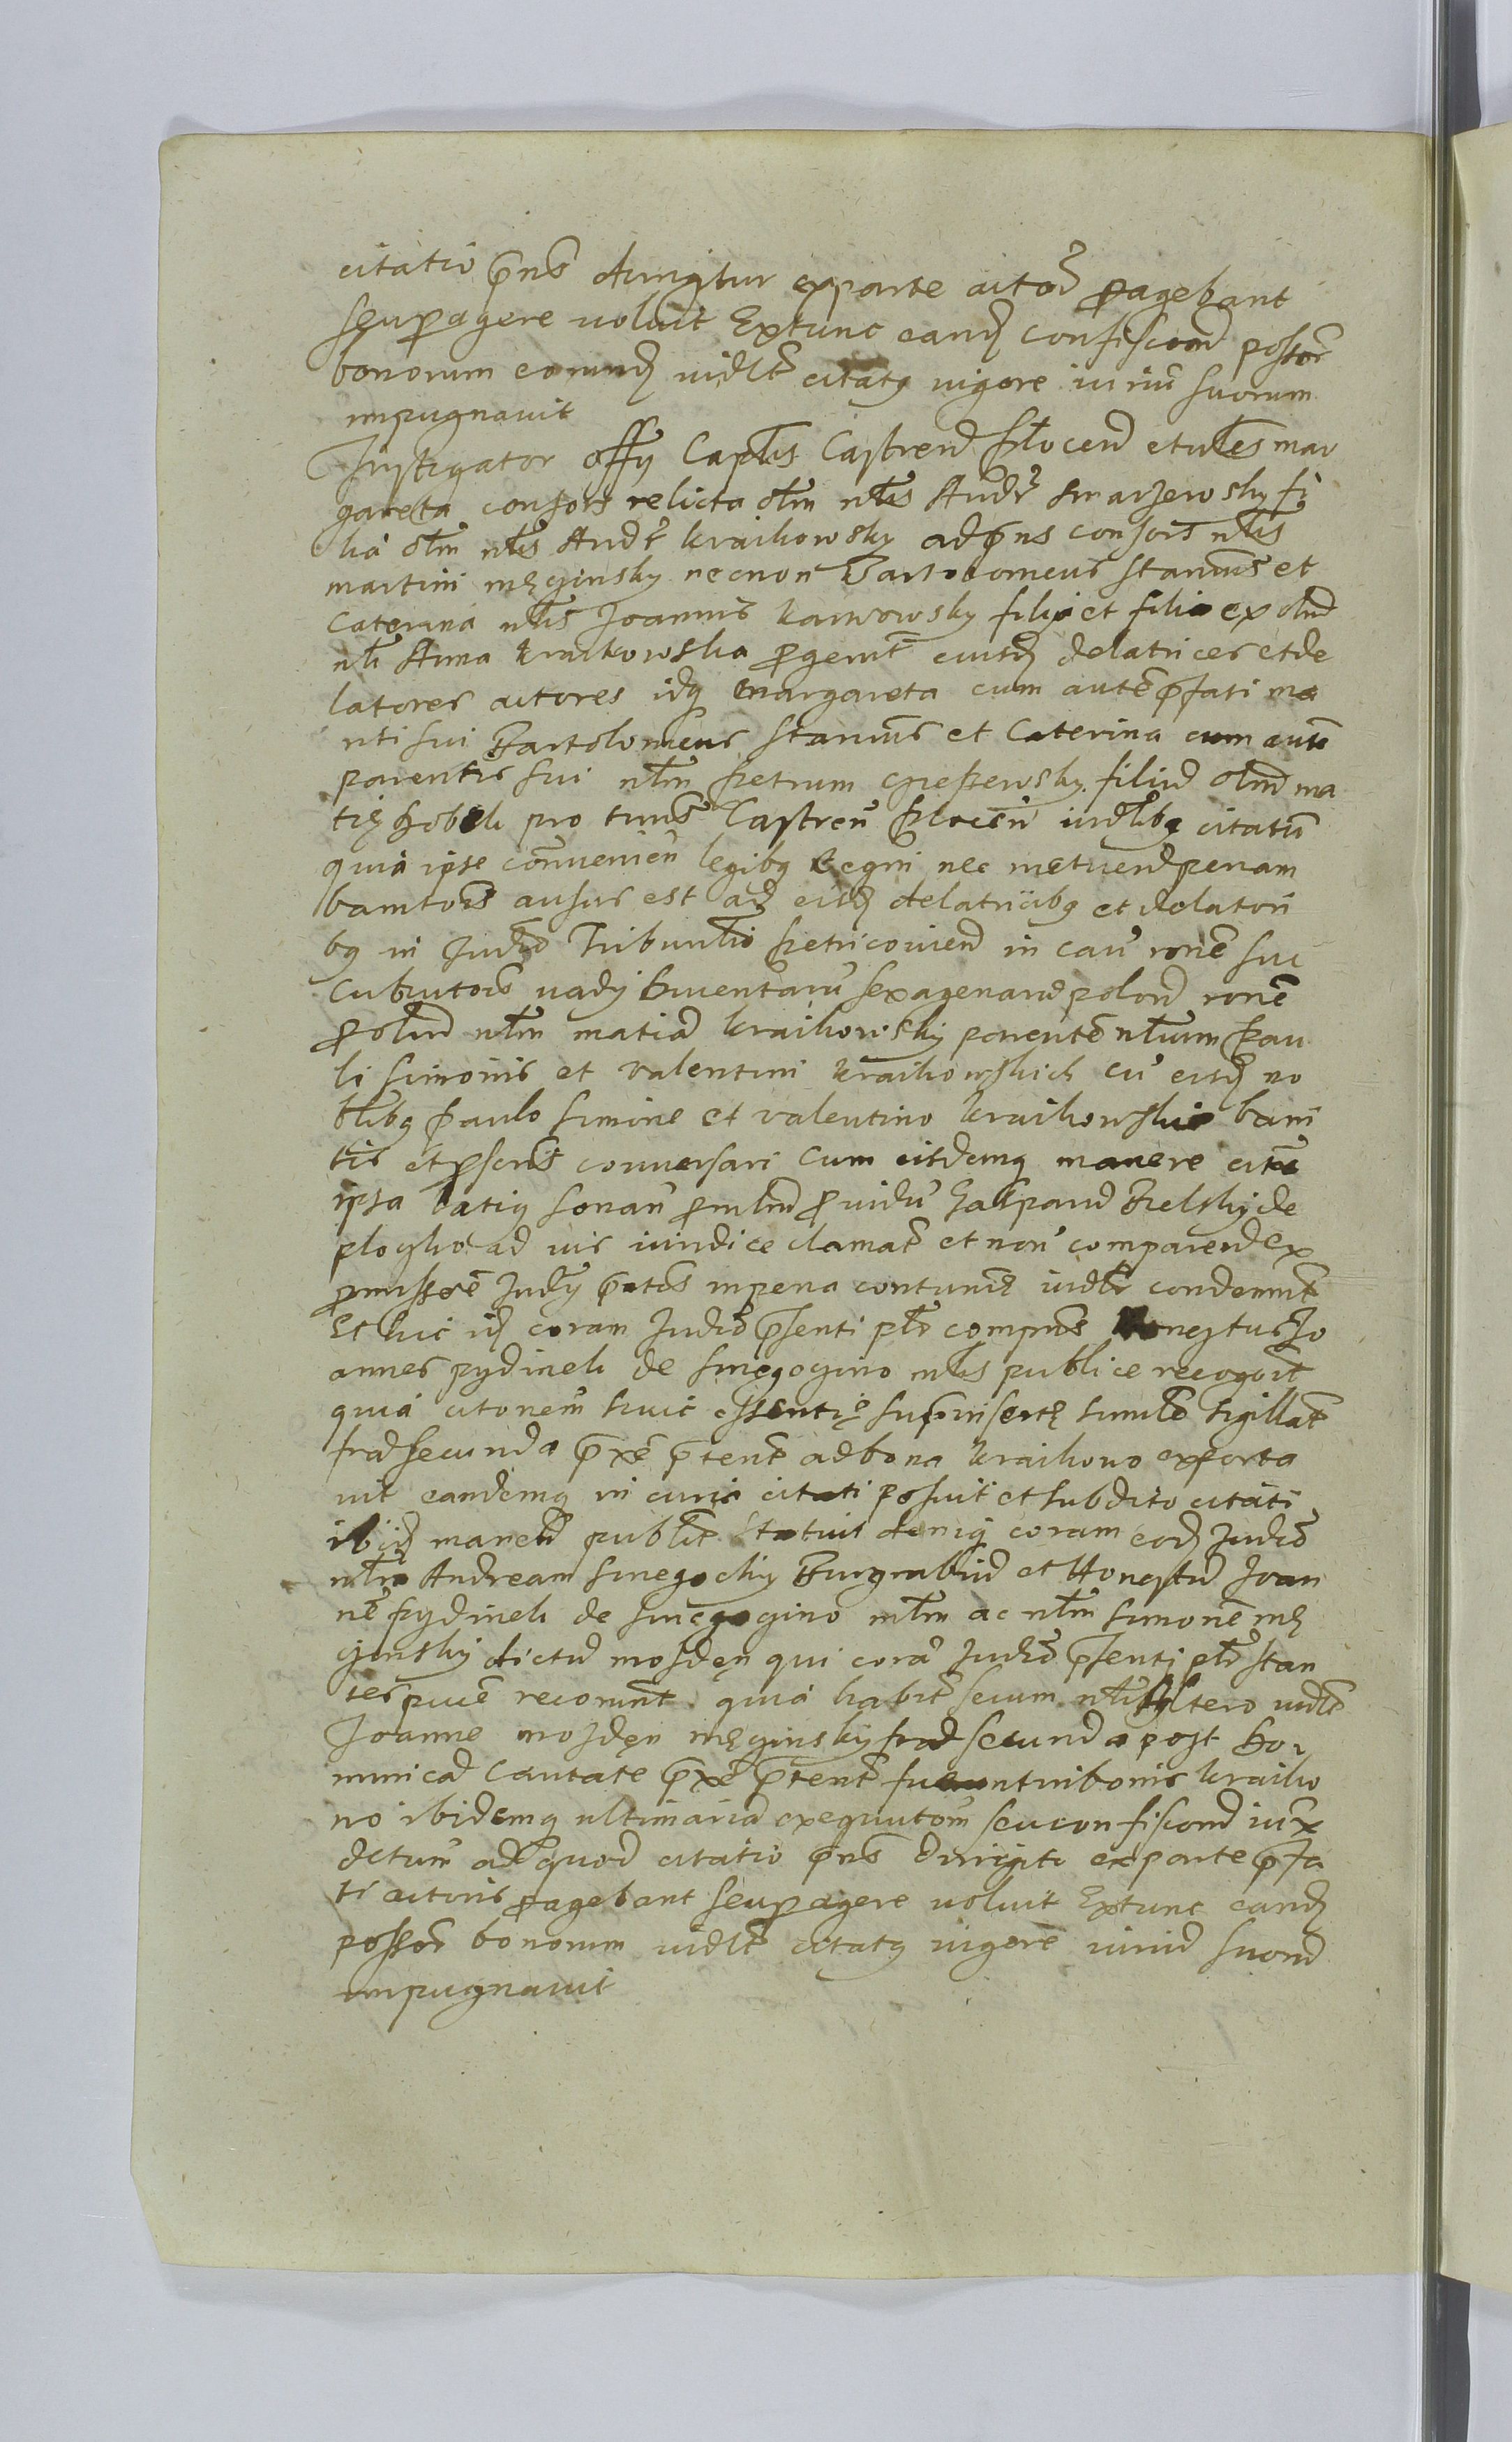 citatio pñs dirigitur ex parte actoȓ p̱agebant
seu p̱agere voluit Extunc eand confiscond possor̃
bonorum eorund vidlt̃ citatq vigore iuriũ suorum
impugnavit
Instigator offy Caplis Castren Plocen et nles mar
gareta consors relicta olm nlis Andr̃ smarzewsky fi
lia olm nlis Andr̃ kraikowsky ad p̃ns consors nlis
martini męginsky necnon Bartolomeus stanius et
Caterina nlis Joannis karwowsky filii et filia ex olim
nli Anna kraikowska p̱genit̃ eiusd delatrices et de
latores actores idq margareta cum autẽ p̃fati ma
riti sui Bartolomeus stanius et Caterina cum autẽ
parentis sui nlm petrum filiũ olim ma
tię pro tunc Castren̄ plocen̄ iudlibq citatum
quia ipse conuenien̄ legibq Regni nec metuend penam
bannitois ausus est ad eisd delatricibq et delatori
bq in Judicio Tribunlis petricouien in cau ronẽ suc
cubutois vady sexagenarũ polon ronẽ
p̱ olim nlm matiã kraikowsky parentẽ nlium pau
li simonis et valentini kraikowskich cũ eisd no
blibq paulo simone et valentino kraikowskie bani
tis et p̱scris conuersari cum eisdemq manere cite
ipsa latiq sonan̄ p̱ mlm p̱uidũ Gasparũ Bielsky de
plocsko ad iuris iuridice clamat̃ et non comparend ex
p̱missoẽ Judy p̃ntis in pena contumẽ iudlr condemnt̃
Et huic id coram Judicio p̃senti plr compnes Honestus Jo
annes pydinek de smęgocino mls publice recogoit
quia citonem̄ huic essentię supinsertę similẽ sigillat̃
frã secunda p̃xẽ p̃terit̃ ad bona kraikowo exporta
uit eandemq in curia citati posuit et subdito citati
ibid manen̄ publit̃ Statuit deniq coram eod Judicio
nlm Andream smegocky Burgrabiũ et Honestũ Joan
nẽ pydinek de smęgocino mlm ac nlm simonẽ mę
ginsky dictũ mozdęn qui corã Judicio p̃senti plr stan
tes pucẽ recorunt quia habit̃ secum nli altero vidlt̃
Joanne mozdęn męginsky frã secunda post Do
minicã Cantate p̃xẽ p̃terit̃ fuerunt in bonis kraiko
wo ibidemq ultimariã exequutom̄ seu confiscond iux
dctum̄ ad quod citatio p̃ns dirigitr ex parte p̃fa
ti actoris p̱agebant seu p̱agere voluit Extunc eand
possor̃ bonorum vidlt̃ citatq vigore iuriũ suorũ
impugnavit